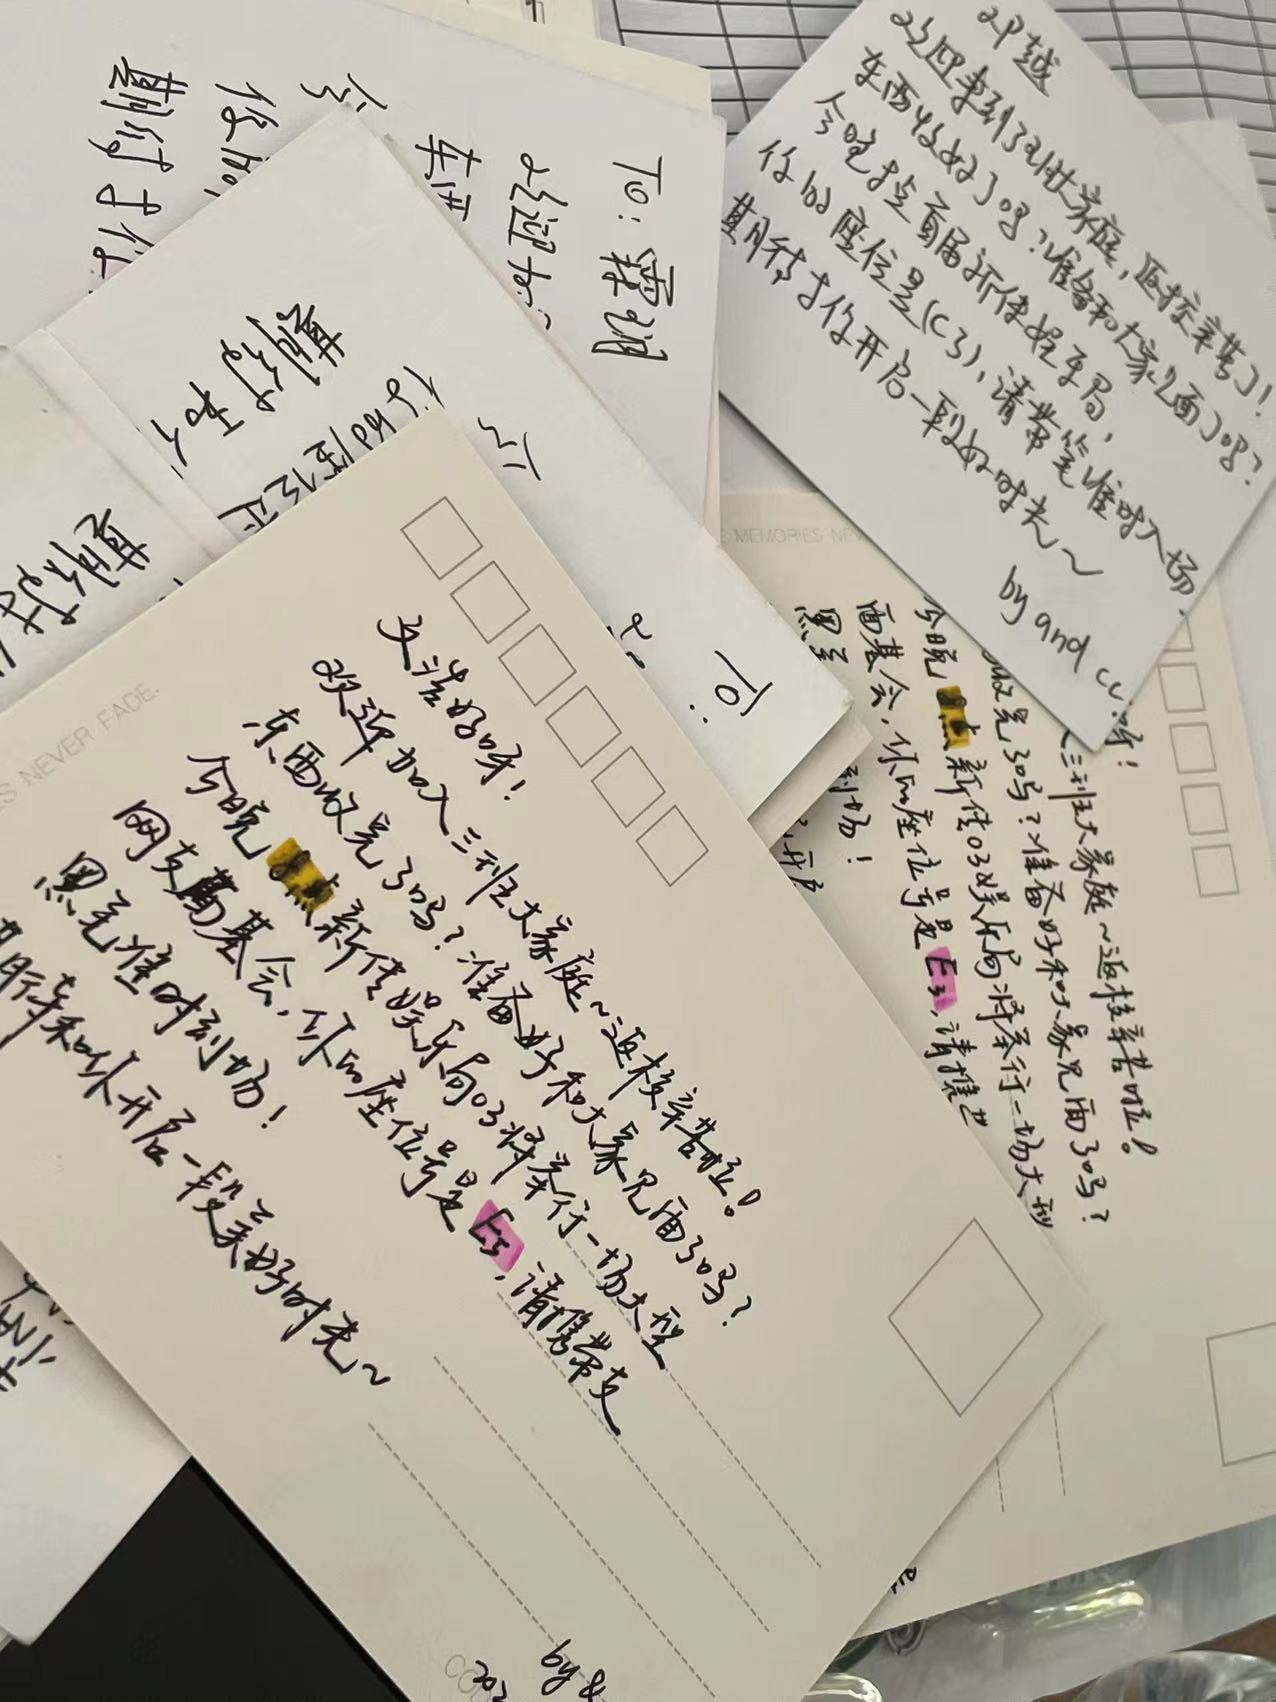 To: 霖明
欢迎加
东西
今
你的
期待与你
期待和你
你的座位是
今
To:
期待
叩越
欢迎来到3班大家庭,返校辛苦了!
东西收好了吗?准备和大家见面了吗?
今晚 首届新传娱乐局,
你的座位是(C3),请带笔准时入场.
期待与你开启一段好时光~
by and cc
S NEVER FADE.
文浩好呀!
欢迎加入三班大家庭~返校辛苦啦!
东西收完了吗?准备好和大家见面了吗?
今晚8点新传娱乐局03将举行一场大型
网友面基会,你的座位号是E3,请携带
黑笔准时到场!
期待和你开启一段美好时光~
by
E MEMORIES NEV
呀!
入三班大家庭~返校辛苦啦!
收完了吗?准备好和大家见面了吗?
今晚8点新传03娱乐局将举行一场大型
面基会,你的座位号是E3,请携
黑
到场!
开启